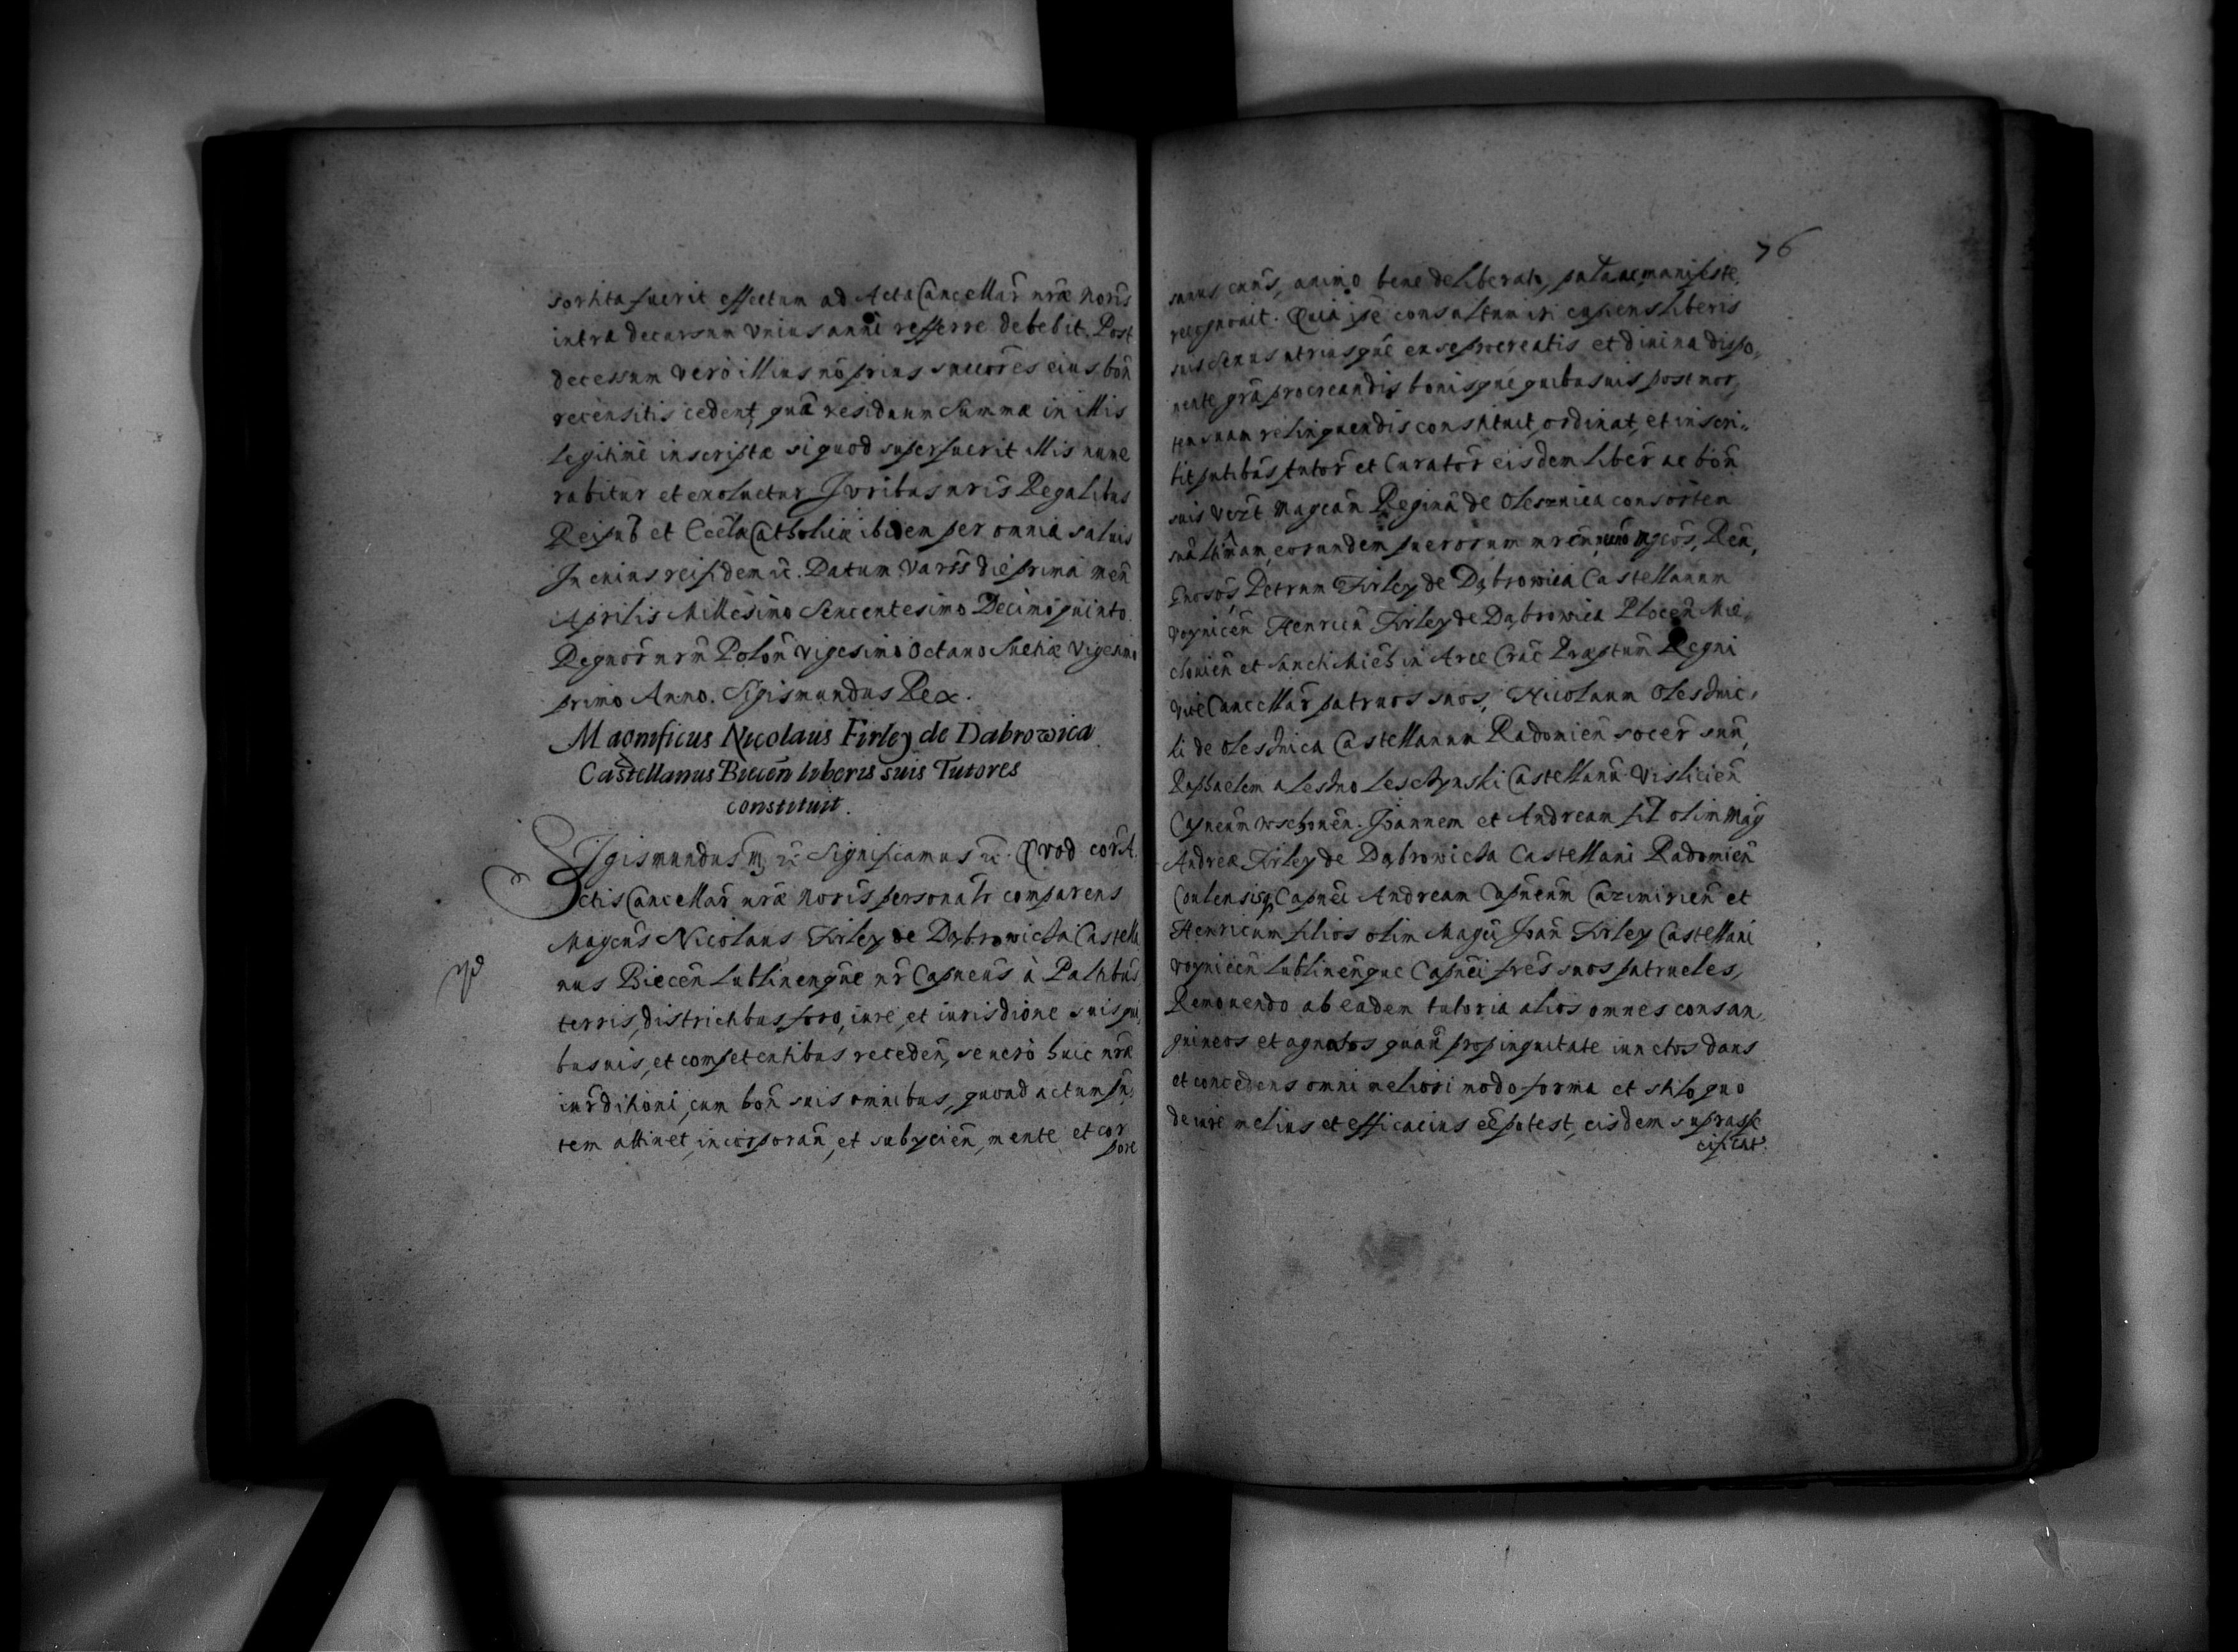 sortita fuerit effectum ad Acta Cancellar̃ nr̃æ Noris
intra decursum vnius anni refferre debebit. Post
decessum vero illius nõ prius succores eius bon̄
recensitis cedent, quã residuum Summæ in illis
legitime inscriptæ si quod superfuerit illis nume
rabitur et exoluetur Iuribus nris Regalibus
Reipub et Eccla Catholicæ ibidem per omnia saluis
In cuius rei fidem ꝛc. Datum Vars die prima men̄
Aprilis Millesimo Sexcentesimo Decimo quinto
Regnor̃ nrm̃ Polon̄ vigesimo Octauo Suetiæ Vigesimo
primo Anno. Sigismundus Rex.
Magnificus Nicolaus Firley de Dabrowica
Castellanus Biecen̄ liberis suis Tutores
constituit.
Sigismundus ꝛc Significamus ꝛc. Quod cor̃ A
ctis Cancellar̃ nræ Noris personalr comparens
Magcus Nicolaus Firley de Dąbrowicza Castella
nus Biecen̄ Lublinenque nr̃ Capneus à Palnbus
terris, districtibus foro, iure, et iurisdione suis qui
busuis, et competentibus receden̄, se uero huic nræ
iurditioni, cum bon̄ suis omnibus, quoad actum pn̄
tem attinet, incorporan̄, et subycien̄, mente et cor
pore
76
sanus existens, animo bene deliberato, palam ac manifeste,
recognouit. Quia ipse consultum iri cupiens liberis
suis sexus utriusque ex se procreatis et diuina dispo,
nente gr̃a procreandis bonisque quibusuis post mor,
tem suam relinquendis constituit, ordinat, et inscri,
bit pntibus tutor̃ et Curator̃ eisdem liber̃ ac bon̄
suis vezt Magcam Reginã de Olesznica consortem
suã eorundem puerorum mrem, nec non Mgcos, Reu,
Gnosos, Petrum Firley de Dąbrowica Castellanum
voynicen̄ Henricũ Firley de Dąbrowica Plocen̄ Mie,
chouien̄ et Sancti Mich in Arce Crac̄ Præptum Regni
ViceCancellar̃ patruos suos, Nicolaum Olesnic,
ki de Olesnica Castellanum Radomien̄ socer̃ suũ,
Raphaelem a Leszno Lesczynski Castellanũ Vislicien̄
Capneum wschouen̄. Joannem et Andream fil olim Mag
Andreæ Firley de Dąbrowicza Castellani Radomien̄
Coulensisq Capnei Andream Capneum Cazimirien̄ et
Henricum filios olim Magci Joan̄ Firley Castellani
voynicen̄ Lublinenque Capnei fres suos patrueles,
Remouendo ab eadem tutoria alios omnes consan,
guineos et agnatos quauis propinquitate iunctos dans
et concedens omni meliori modo forma et stilo quo
de iure melius et efficacius ee potest, eisdem supraspe
cificat